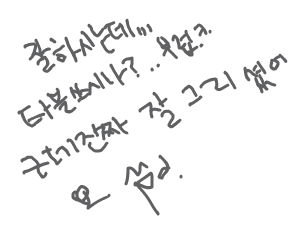 잘하시는데,,,
타블쓰시나?..무섭ㅋ
근데진짜 잘 그리셨어
요 쑻.